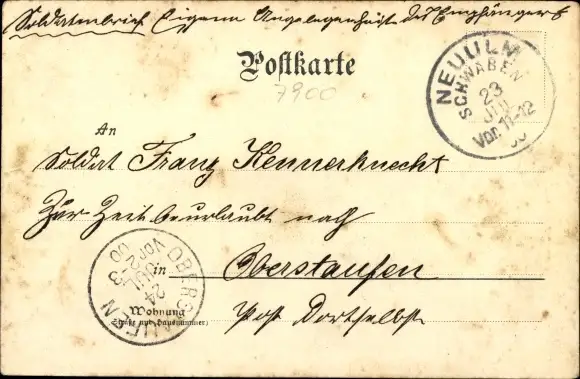 Soldatenbrief Eigene Angelegenheit des Empfängers
Postkarte
7900
NEUULM
SCHWABEN
23
JUL
Vor. 11-12
00
An
Soldat Franz Kennerknecht
Zur Zeit beurlaubt nach
in Oberstaufen
Wohnung
(Straße und Hausnummer)
Post Dortselbst
OBERSTAUFEN
24
JUL
Vor 2-3
00